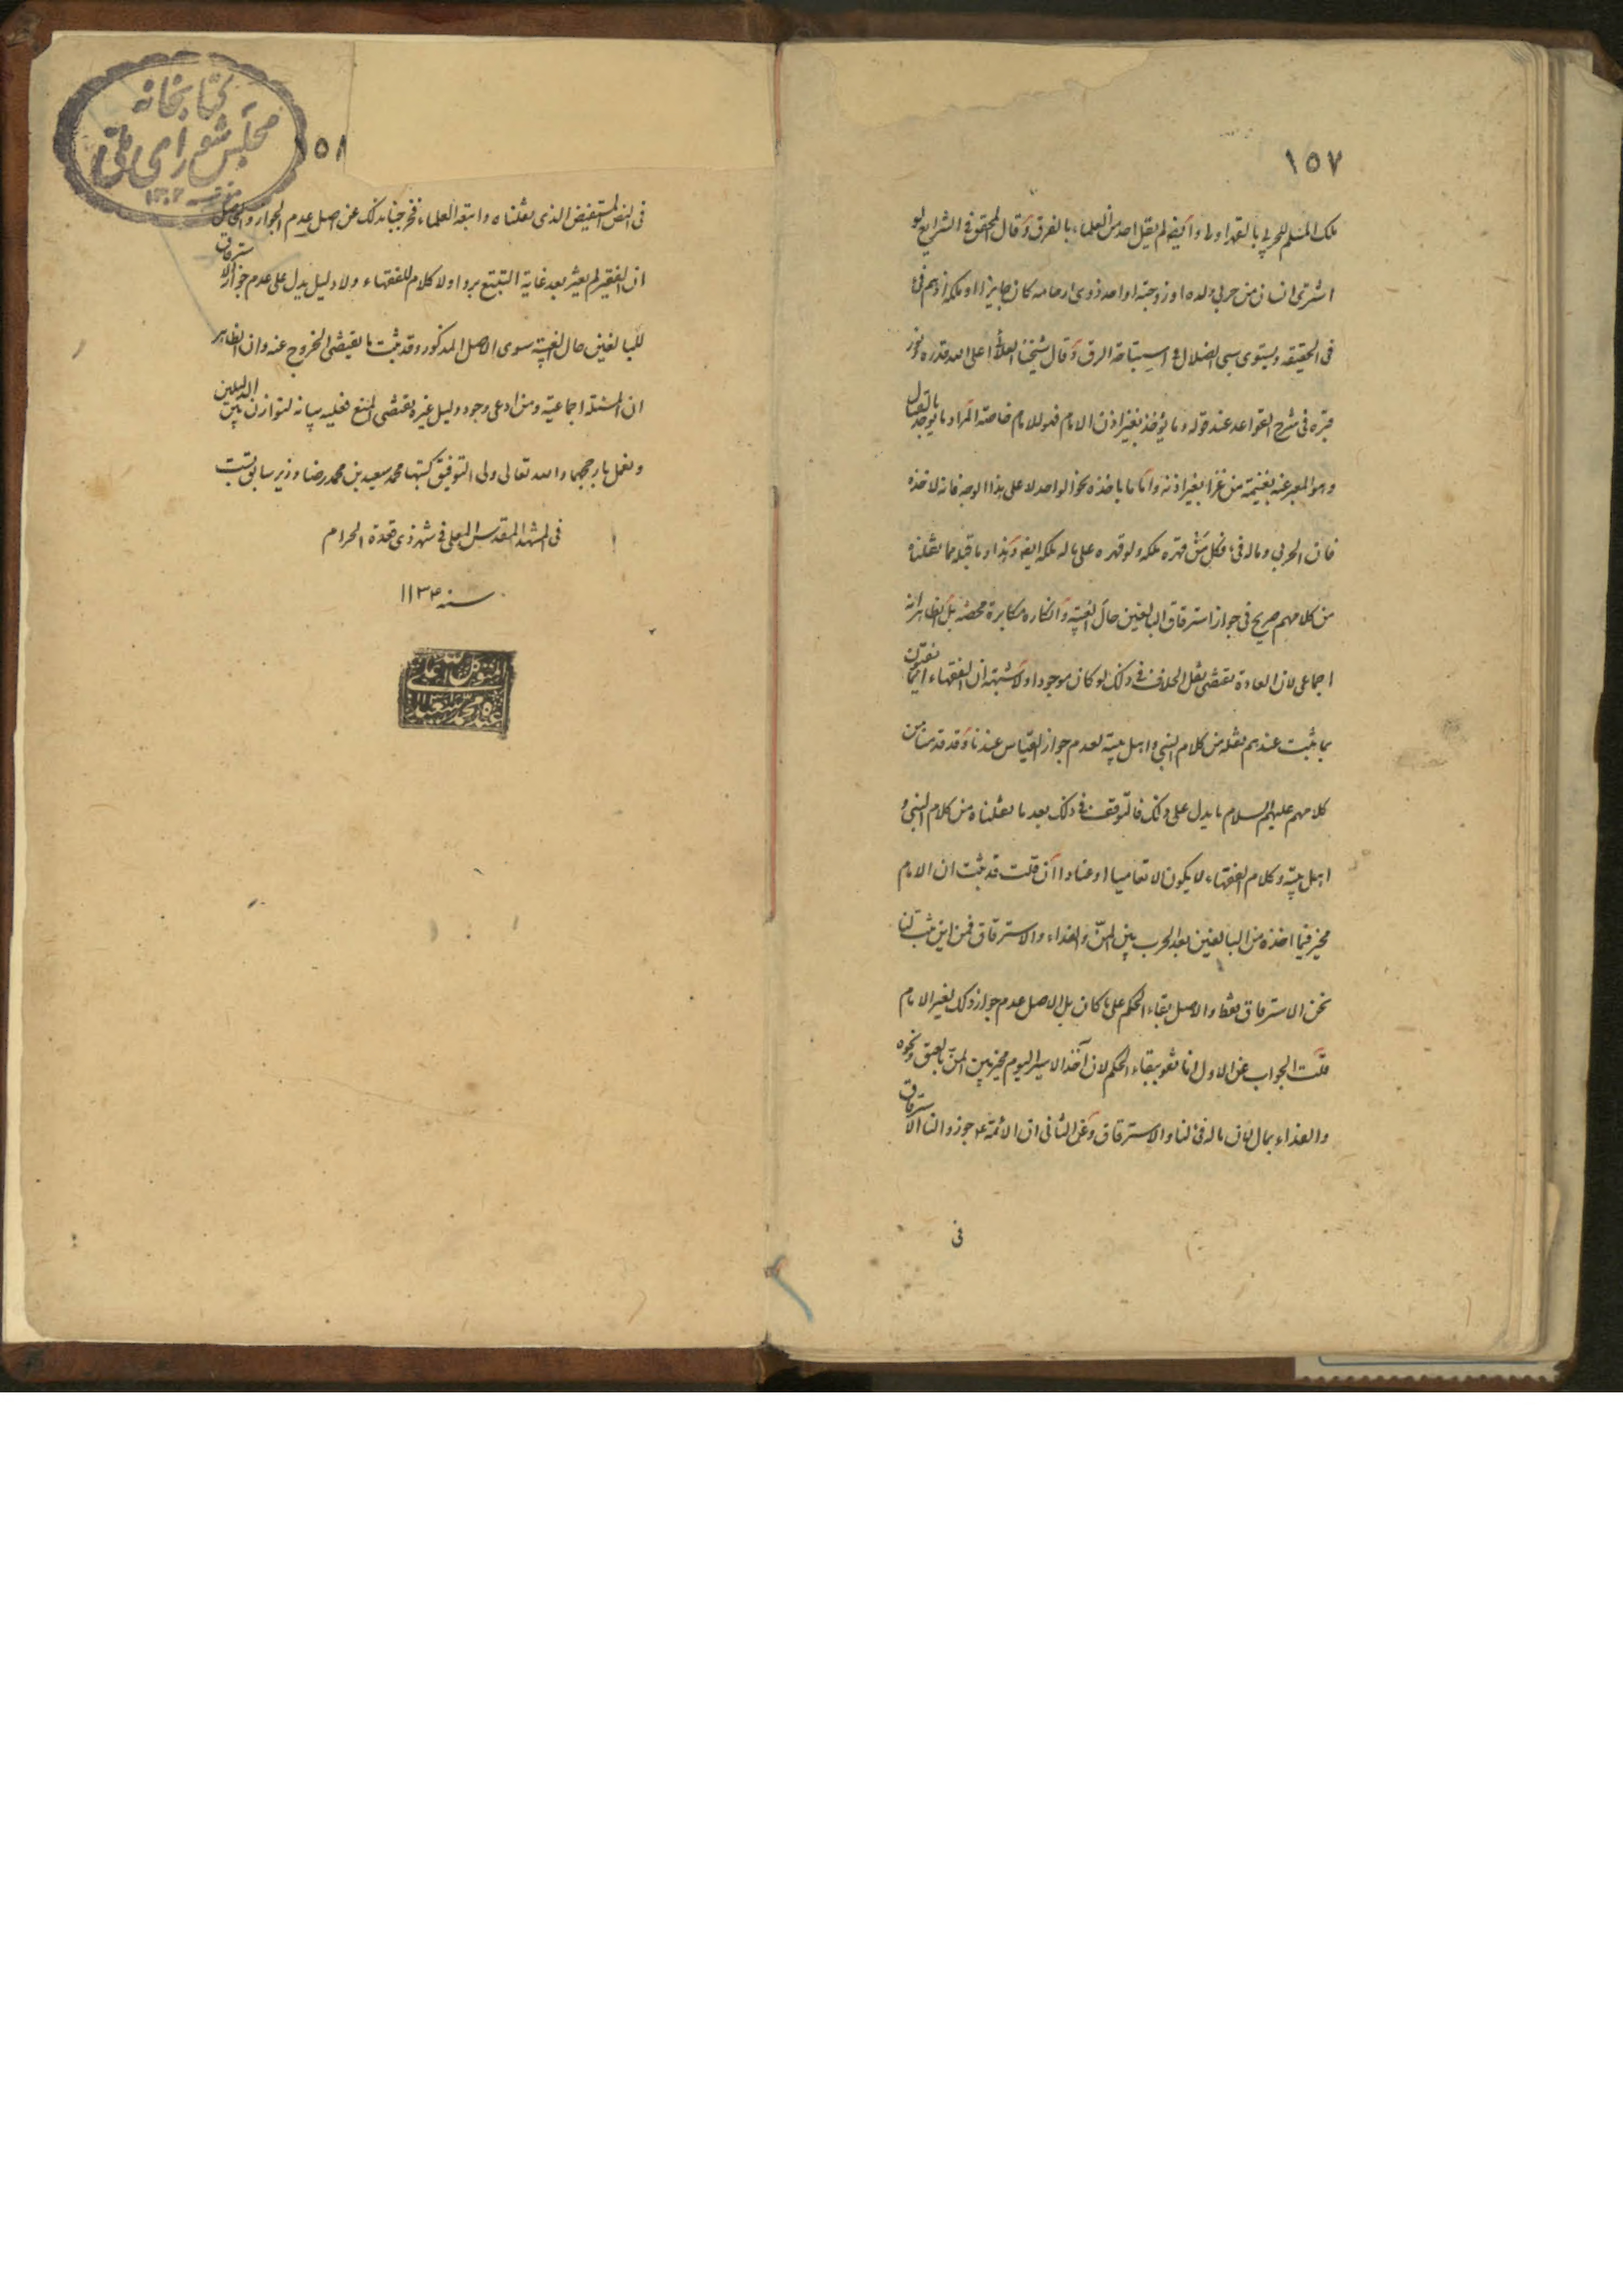 ١٥٧
ملك المسلم للحربي بالقهر اولى وايضا لم يقل احد من العلماء بالفرق وقال المحقق في الشرايع لو
اشترى انسان من حربي ولده او زوجته او احد ذوى ارحامه كان جايزا او ملكه اذ هم فئ
في الحقيقة ويستوى سبى الضلال في استباحة الرق وقال شيخنا العلائى اعلى الله قدره نور
قبره في شرح القواعد عند قوله وما يؤخذ بغير اذن الامام فهو للامام خاصة المراد ما يوخذ بالقتال
وهو المعبر عنه بغنيمة من غزا بغير اذنه واما ما ياخذه نحو الواحد لا على هذا الوجه فانه لاخذه
فان الحربي وماله فئ فكل من قهره ملكه ولو قهره على ماله ملكه ايضا وهذا وما قبله مما نقلناه
من كلامهم صريح في جواز استرقاق البالغين حال الغيبة وانكاره مكابرة محضة بل الظاهر انه
اجماعى لان العادة تقتضى نقل الخلاف في ذلك لو كان موجودا ولا شبهة ان الفقهاء انما يفتون
بما يثبت عندهم نقله من كلام النبي واهل بيته لعدم جواز القياس عندنا وقد قدمنا من
كلامهم عليهم السلام ما يدل على ذلك فالتوقف في ذلك بعد ما نقلناه من كلام النبي و
اهل بيته وكلام الفقهاء لا يكون الا تعاميا او عنادا ان قلت قد يثبت ان الامام
مخير فيما اخذه من البالغين بعد الحرب بين المن والفداء والاسترقاق فمن اين يثبت لنا
نحن الاسترقاق فقط والاصل بقاء الحكم على ما كان بل الاصل عدم جواز ذلك لغير الامام
قلت الجواب عن الاول انا نقول ببقاء الحكم لان آخذ الاسير اليوم مخير بين المن بالعتق ونحوه
والفداء بمال لان ماله فئ لنا والاسترقاق وعن الثانى ان الائمة ع جوزوا لنا الاسترقاق
في
١٥٨
كتابخانه
مجلس شوراى ملى
١٣٠٢
في النص المستفيض الذى نقلناه واتبعه العلماء فخرجنا بذلك عن اصل عدم الجواز والحاصل
ان الفقير لم يعثر بعد غاية التتبع برواولا كلام للفقهاء ولا دليل يدل على عدم جواز الاسترقاق
للبالغين حال الغيبة سوى الاصل المذكور وقد ثبت ما يقتضى الخروج عنه وان الظاهر
ان المسئلة اجماعية ومن ادعى وجود دليل غيره يقتضى المنع فعليه بيانه لنوازن بين الدليلين
ونعمل بارجحهما والله تعالى ولى التوفيق كتبها محمد سعيد بن محمد رضا وزير سابق
في المشهد المقدس المعلى في شهر ذى قعدة الحرام
سنه ١١٣٤
المتوكل على الله
عبده محمد سعيد